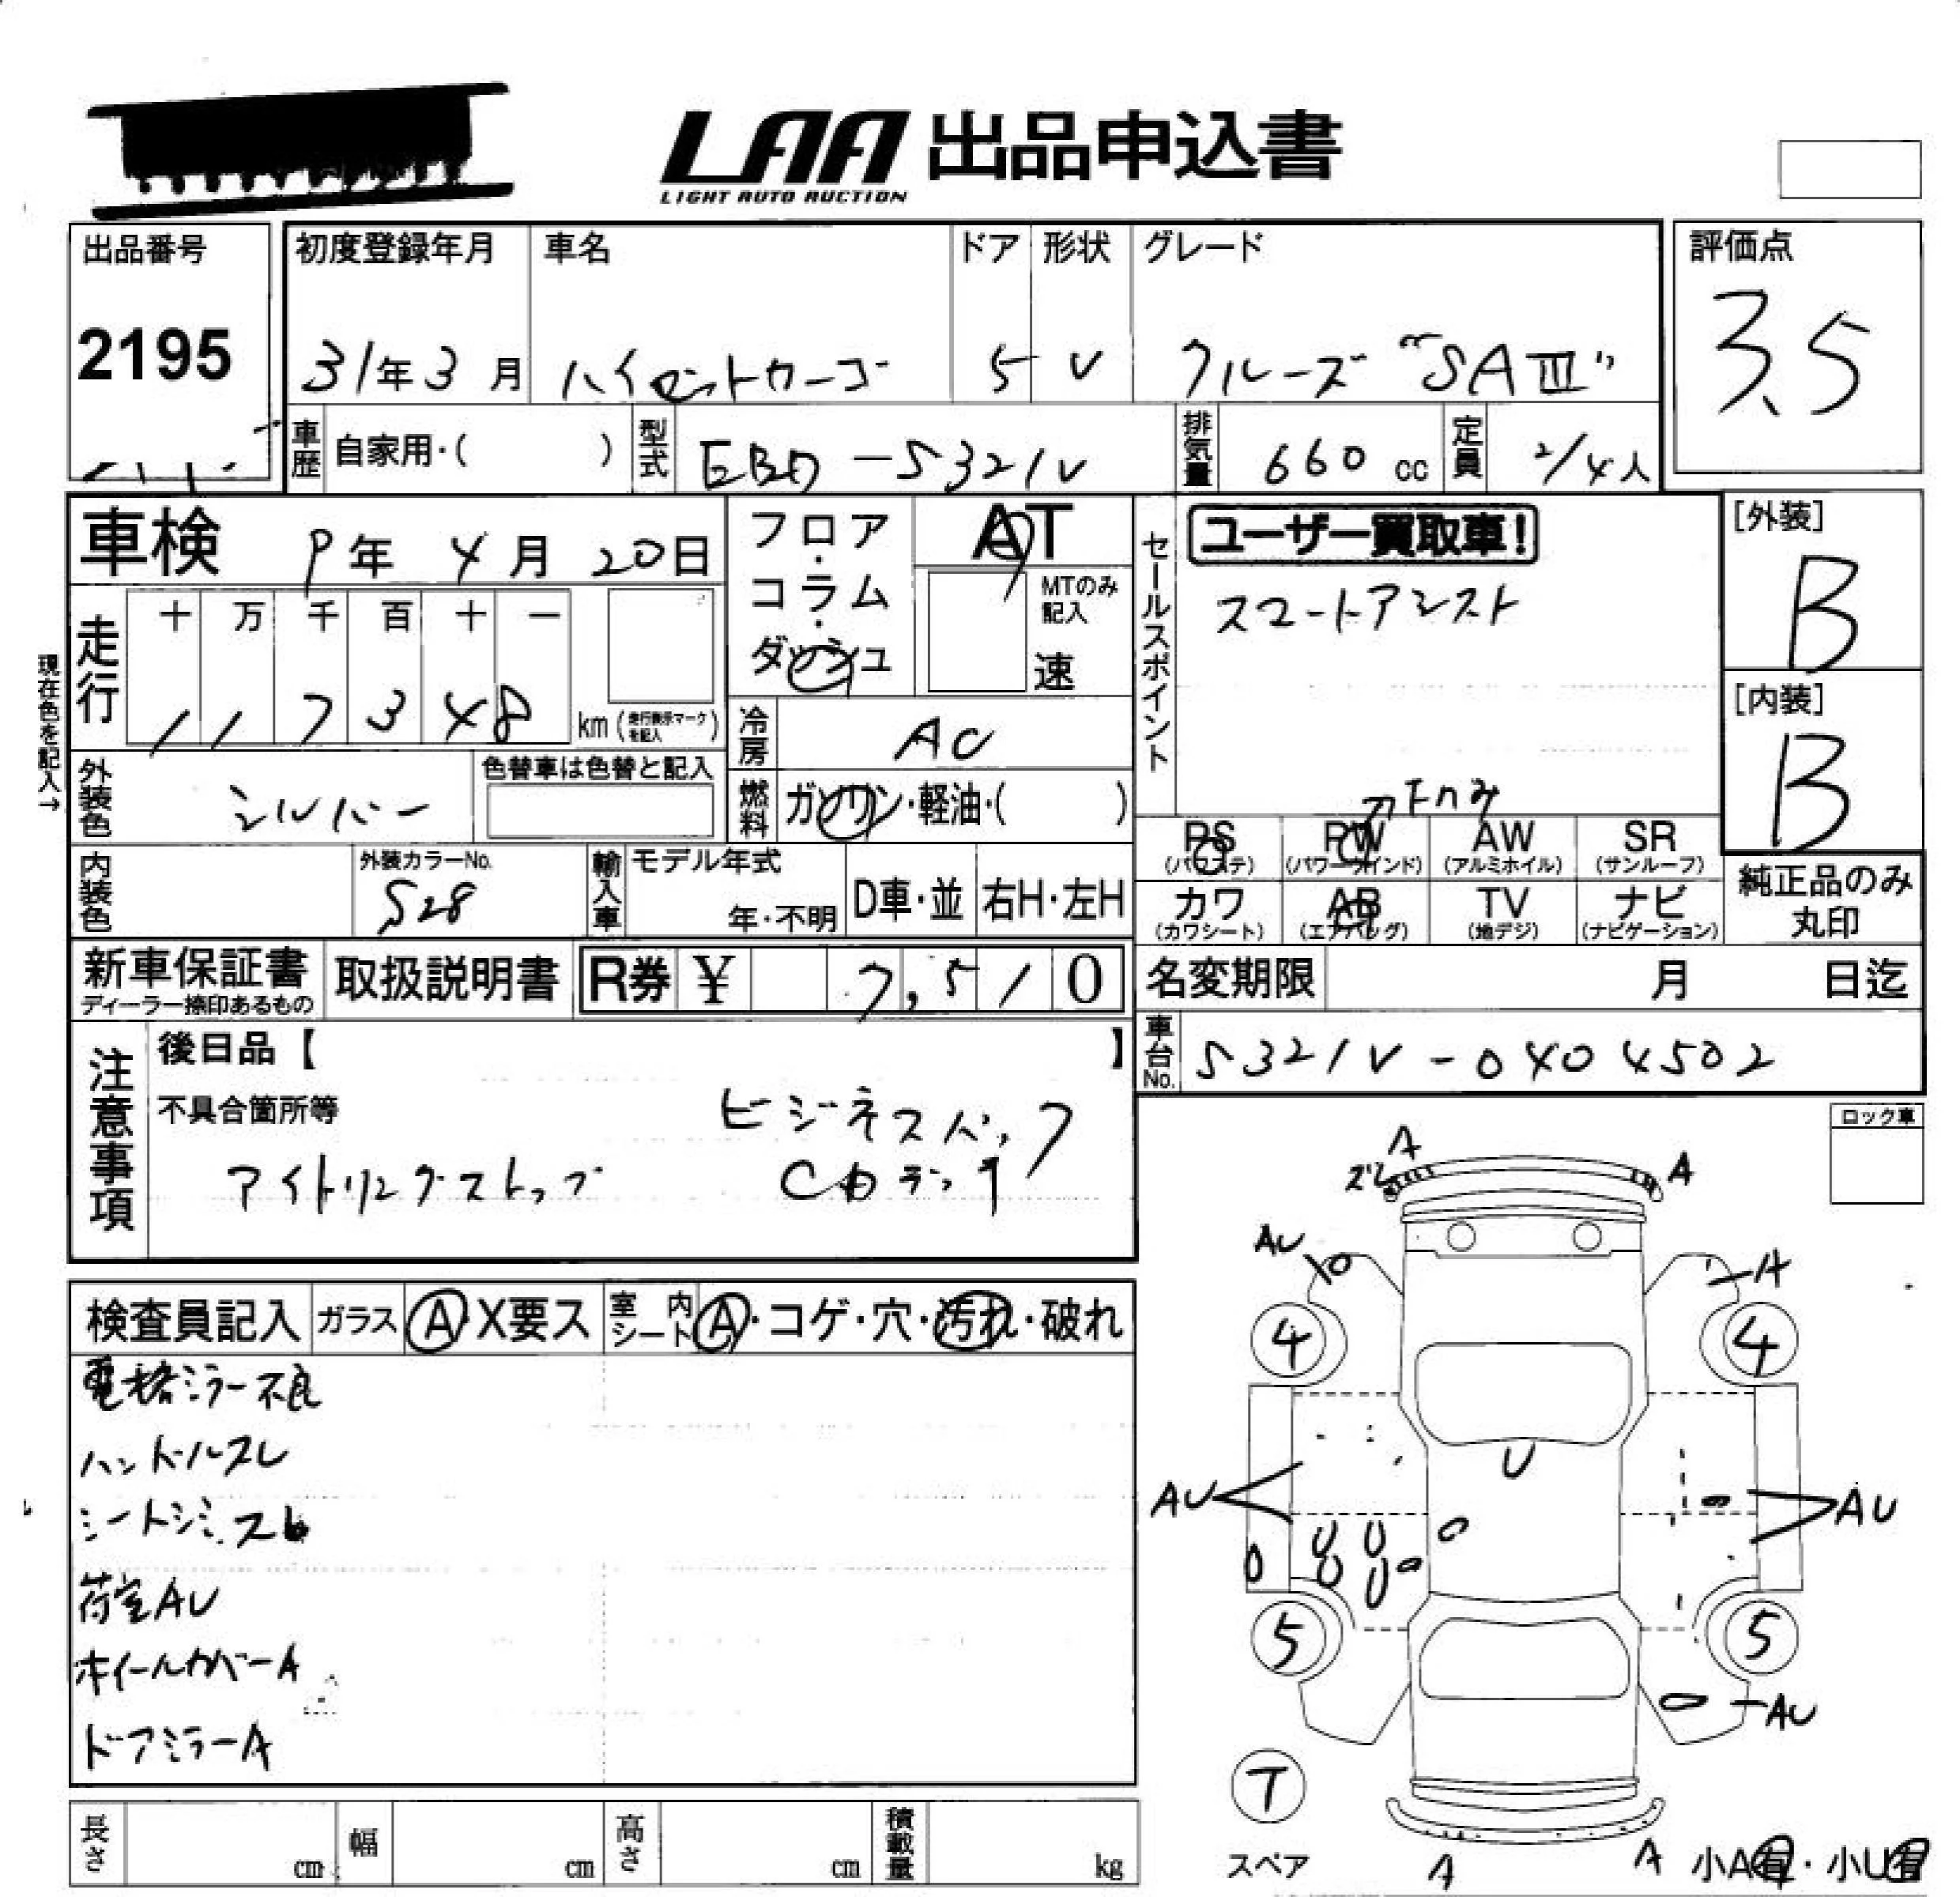 LAA 出品申込書
LIGHT AUTO AUCTION
出品番号
2195
初度登録年月
31年3月
車名
ハイゼットカーゴ
ドア
5
形状
V
グレード
クルーズ "SAⅢ"
評価点
3.5
車歴 自家用・( )
型式 EBD-S321V
排気量 660 cc
定員 2/4人
車検 9年 4月 20日
現在色を記入→
走行
十 万 千 百 十 一
1 1 7 3 4 8 km (走行表示マークを記入)
フロア・コラム・ダッシュ
AT
MTのみ記入
速
セールスポイント
ユーザー買取車!
スマートアシスト
[外装]
B
[内装]
B
外装色 シルバー
色替車は色替と記入
冷房 AC
燃料 ガソリン・軽油・( )
Fnみ
PS (パワステ)
PW (パワーウインド)
AW (アルミホイル)
SR (サンルーフ)
カワ (カワシート)
AB (エアバッグ)
TV (地デジ)
ナビ (ナビゲーション)
純正品のみ丸印
内装色
外装カラーNo.
S28
輸入車
モデル年式
年・不明
D車・並
右H・左H
新車保証書
ディーラー捺印あるもの
取扱説明書
R券 ¥ 7,510
名変期限 月 日迄
車台No. S321V-0404502
注意事項
後日品【 】
不具合箇所等
ビジネスパック
アイドリングストップ
CDデッキ
ロック車
検査員記入
ガラス A・X要ス
室内シート A・コゲ・穴・汚れ・破れ
電格ミラー不良
ハンドルスレ
シートシミ.スレ
荷室AU
ホイールカバーA
ドアミラーA
A
ズレ
A
AU
A
4
4
U
AU
AU
U U
U U
5
5
AU
T
スペア
A
A
小A有・小U有
長さ cm
幅 cm
高さ cm
積載量 kg